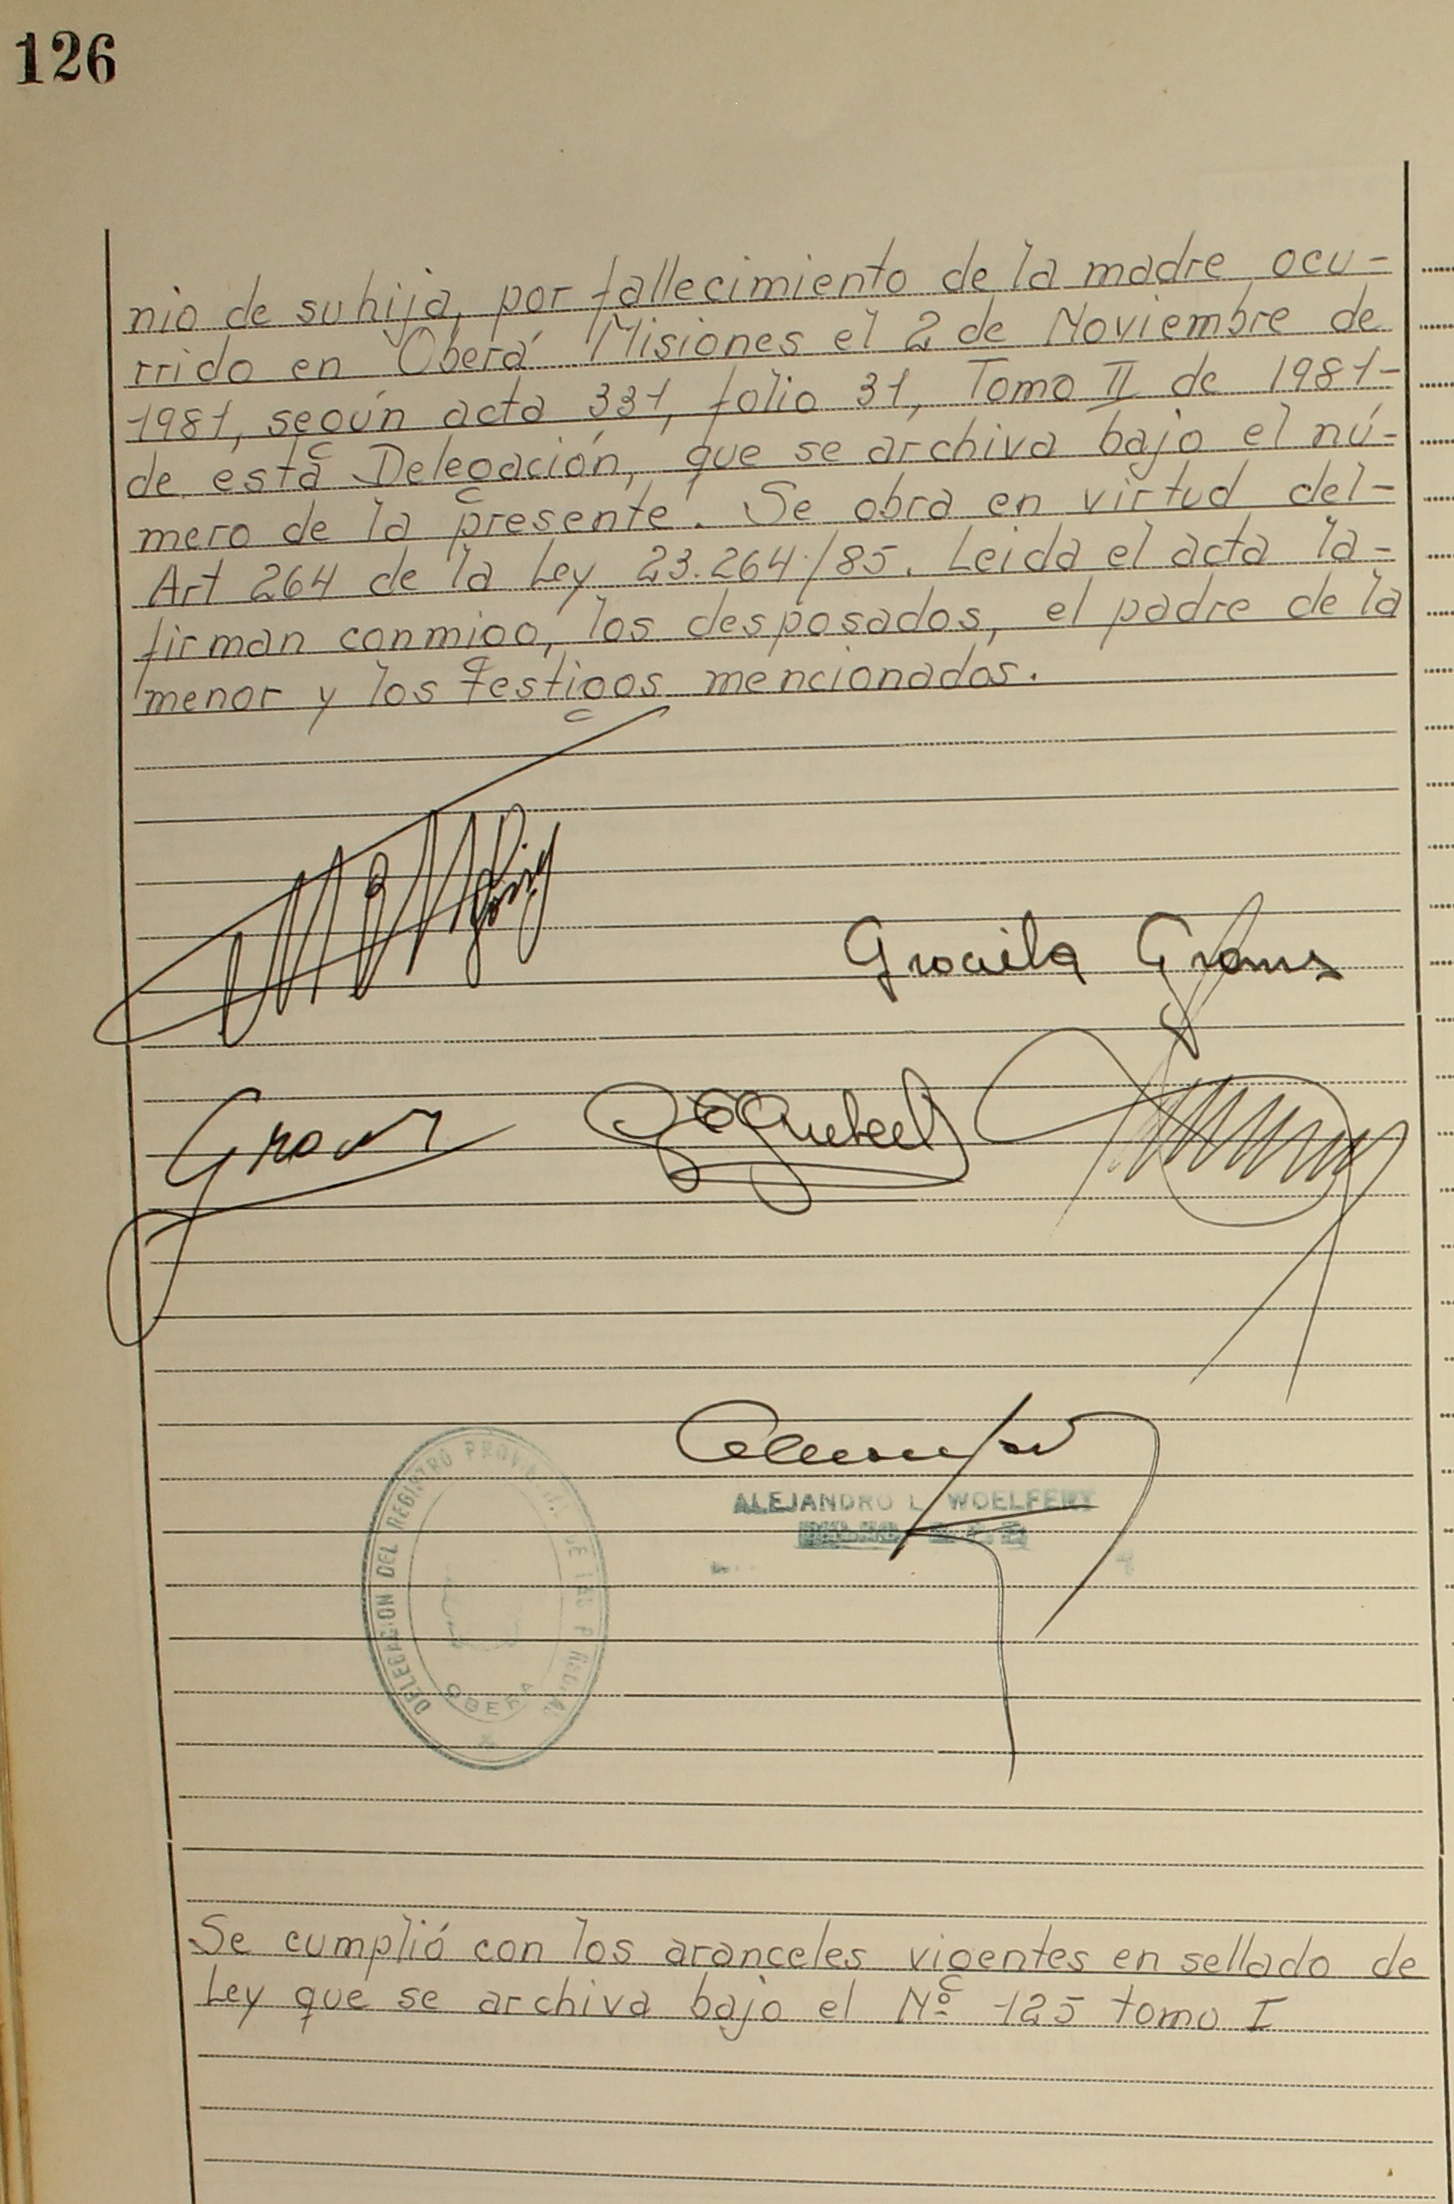 126
nio de su hija, por fallecimiento de la madre ocu-
rrido en Oberá Misiones el 2 de Noviembre de
1981, según acta 331, folio 31, Tomo II de 1981-
de esta Delegación, que se archiva bajo el nú-
mero de la presente. Se obra en virtud del-
Art 264 de la Ley 23.264/85. Leida el acta la-
firman conmigo, los desposados, el padre de la
menor y los testigos mencionados.
Graciela Graus
DELEGACION DEL REGISTRO PROVINCIAL DE LAS PERSONAS
OBERA
ALEJANDRO L. WOELFERT
Se cumplió con los aranceles vigentes en sellado de
Ley que se archiva bajo el Nº 125 tomo I